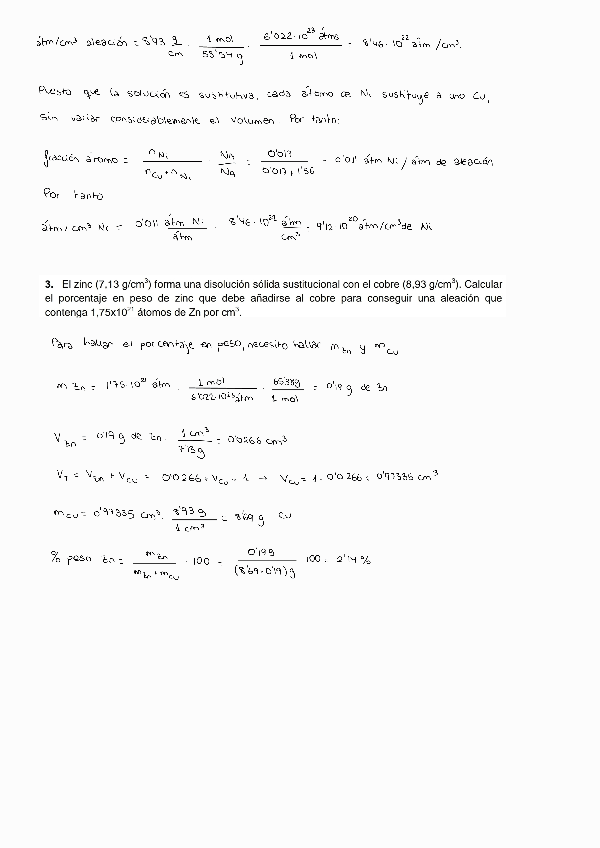 átm/cm³ aleación = 8'93 g/cm · 1 mol/63'54 g · 6'022·10²³ átms/1 mol = 8'46·10²² átm/cm³.
Puesto que la solución es sustitutiva, cada átomo de Ni sustituye a uno Cu,
sin variar considerablemente el volumen. Por tanto:
fracción átomo = n Ni/(n Cu + n Ni) · NA/NA = 0'017/(0'017 + 1'56) = 0'011 átm Ni / átm de aleación
Por tanto
átm/cm³ Ni = 0'011 átm Ni/átm · 8'46·10²² átm/cm³ = 9'12·10²⁰ átm/cm³ de Ni
3. El zinc (7,13 g/cm³) forma una disolución sólida sustitucional con el cobre (8,93 g/cm³). Calcular
el porcentaje en peso de zinc que debe añadirse al cobre para conseguir una aleación que
contenga 1,75x10²¹ átomos de Zn por cm³.
Para hallar el porcentaje en peso, necesito hallar m Zn y m Cu
m Zn = 1'75·10²¹ átm · 1 mol/6'022·10²³ átm · 65'38 g/1 mol = 0'19 g de Zn
V Zn = 0'19 g de Zn · 1 cm³/7'13 g = 0'0266 cm³
V T = V Zn + V Cu = 0'0266 + V Cu = 1 → V Cu = 1 - 0'0266 = 0'97335 cm³
m Cu = 0'97335 cm³ · 8'93 g/1 cm³ = 8'69 g Cu
% peso Zn = m Zn/(m Zn + m Cu) · 100 = 0'19 g/(8'69 + 0'19) g · 100 = 2'14 %